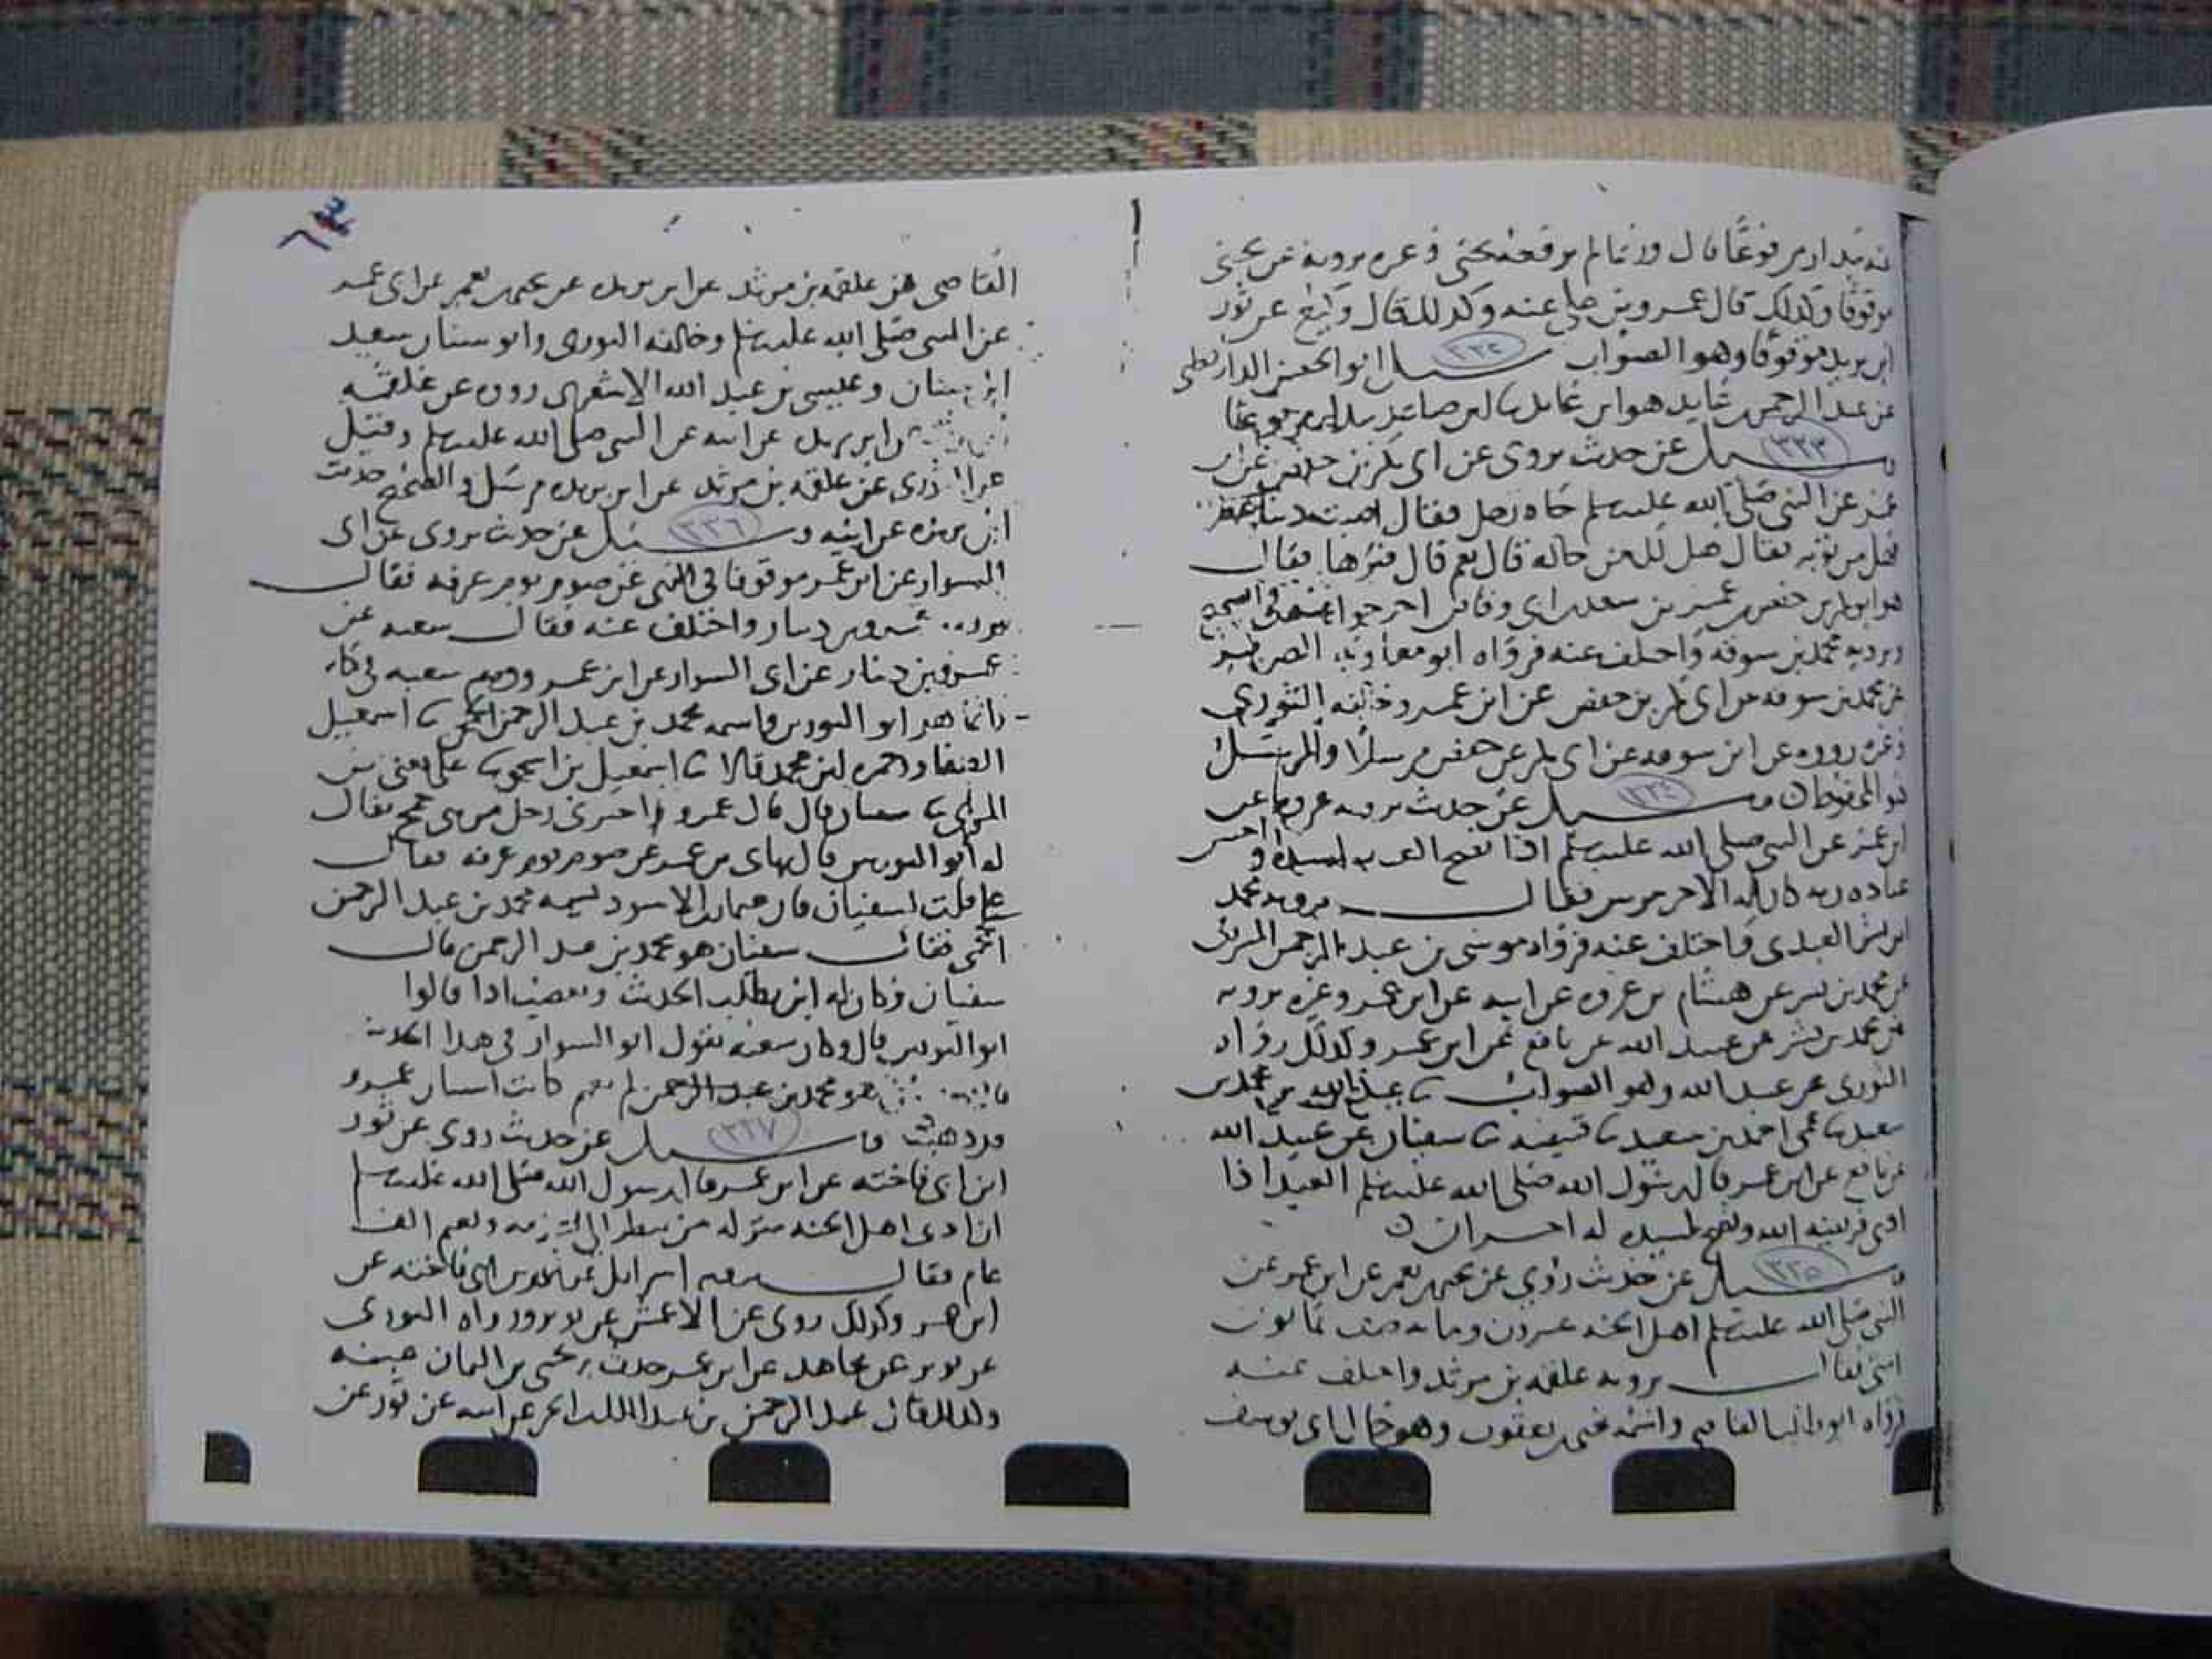 بندار مرفوعا قال وربما لم يرفعه يحيى وغيره يرويه عن يحيى
موقوفا وكذلك قال عمرو بن علي عنه وكذلك قال وكيع عن ثور
ابن يزيد موقوفا وهو الصواب ٣٣٢ سئل ابو الحسن الدارقطني
عن عبد الرحمن بن عايد هو ابن عايد
٣٣٣ وسئل عن حديث يروى عن ابي بكر بن حفص عن ابن
عمر عن النبي صلى الله عليه وسلم جاه رجل فقال اصبت دنبا عظيما
فهل من توبه فقال هل لك من خاله قال نعم قال فبرها فقال
هو ابو بكر بن حفص بن عمر بن سعد بن ابي وقاص اخرجوا عنه في الصحيح
ويرويه محمد بن سوقه واختلف عنه فرواه ابو معاويه الضرير
عن محمد بن سوقه عن ابي بكر بن حفص عن ابن عمر وخالفه الثوري
وغيره رووه عن ابن سوقه عن ابي بكر بن حفص مرسلا والمرسل
هو المحفوظ ٣٣٤ وسئل عن حديث يرويه عروه عن
ابن عمر عن النبي صلى الله عليه وسلم اذا نصح العبد لسيده واحسن
عباده ربه كان له الاجر مرتين فقال يرويه محمد
ابن بشر العبدي واختلف عنه فرواه موسى بن عبد الرحمن المسروقي
عن محمد بن بشر عن هشام بن عروه عن ابيه عن ابن عمر وغيره يرويه
عن محمد بن بشر عن عبيد الله عن نافع عن ابن عمر وكذلك رواه
الثوري عن عبيد الله وهو الصواب ثنا عبد الله بن محمد بن
سعيد ثنا عمي احمد بن سعيد ثنا قبيصه ثنا سفيان عن عبيد الله
عن نافع عن ابن عمر قال رسول الله صلى الله عليه وسلم العبد اذا
ادى فريضه الله ونصح لسيده له اجران
٣٣٥ وسئل عن حديث روي عن يحيى بن يعمر عن ابن عمر عن
النبي صلى الله عليه وسلم اهل الجنه عشرون ومايه صف ثمانون
امتي فقال يرويه علقمه بن مرثد واختلف عنه
فرواه ابو طالب القاص واسمه يحيى بن يعقوب وهو خال ابي يوسف
القاضي عن علقمه بن مرثد عن ابن بريده عن يحيى بن يعمر عن ابن عمر
عن النبي صلى الله عليه وسلم وخالفه الثوري وابو سنان سعيد
ابن سنان وعيسى بن عبد الله الاشعري رووه عن علقمه
عن ابن بريده عن ابيه عن النبي صلى الله عليه وسلم وقيل
عن الثوري عن علقمه بن مرثد عن ابن بريده مرسل والصحيح حديث
ابن بريده عن ابيه ٣٣٦ وسئل عن حديث يروى عن ابي
السوار عن ابن عمر موقوفا في النهي عن صوم يوم عرفه فقال
يرويه عمرو بن دينار واختلف عنه فقال شعبه عن
عمرو بن دينار عن ابي السوار عن ابن عمر ووهم شعبه في ذكره
وانما هو ابو الثورين واسمه محمد بن عبد الرحمن الجمحي ثنا اسمعيل
الصفار وحمزه بن محمد قالا ثنا اسمعيل بن اسحق ثنا علي يعني بن
المديني ثنا سفيان قال قال عمرو اخبرني رجل من بني جمح يقال
له ابو الثورين قال نهاني بن عمر عن صوم يوم عرفه فقال
علي قلت لسفيان فان عثمان بن الاسود يسميه محمد بن عبد الرحمن
الجمحي فقال سفيان هو محمد بن عبد الرحمن قال
سفيان وكان له ابن يطلب الحديث ويغضب اذا قالوا
ابو الثورين قال وكان شعبه يقول ابو السوار في هذا الحديث
هو محمد بن عبد الرحمن كانت اسنان عمرو
قد ذهبت ٣٣٧ وسئل عن حديث روي عن ثوير
ابن ابي فاخته عن ابن عمر قال رسول الله صلى الله عليه وسلم
ان ادنى اهل الجنه منزله من ينظر الى ازواجه ونعيمه الف
عام فقال يرويه اسرائيل عن ثوير بن ابي فاخته عن
ابن عمر وكذلك روي عن الاعمش عن ثوير ورواه الثوري
عن ثوير عن مجاهد عن ابن عمر حدث به يحيى بن اليمان عنه
وكذلك قال عبد الرحمن بن عبد الملك بن ابجر عن ابيه عن ثوير عن